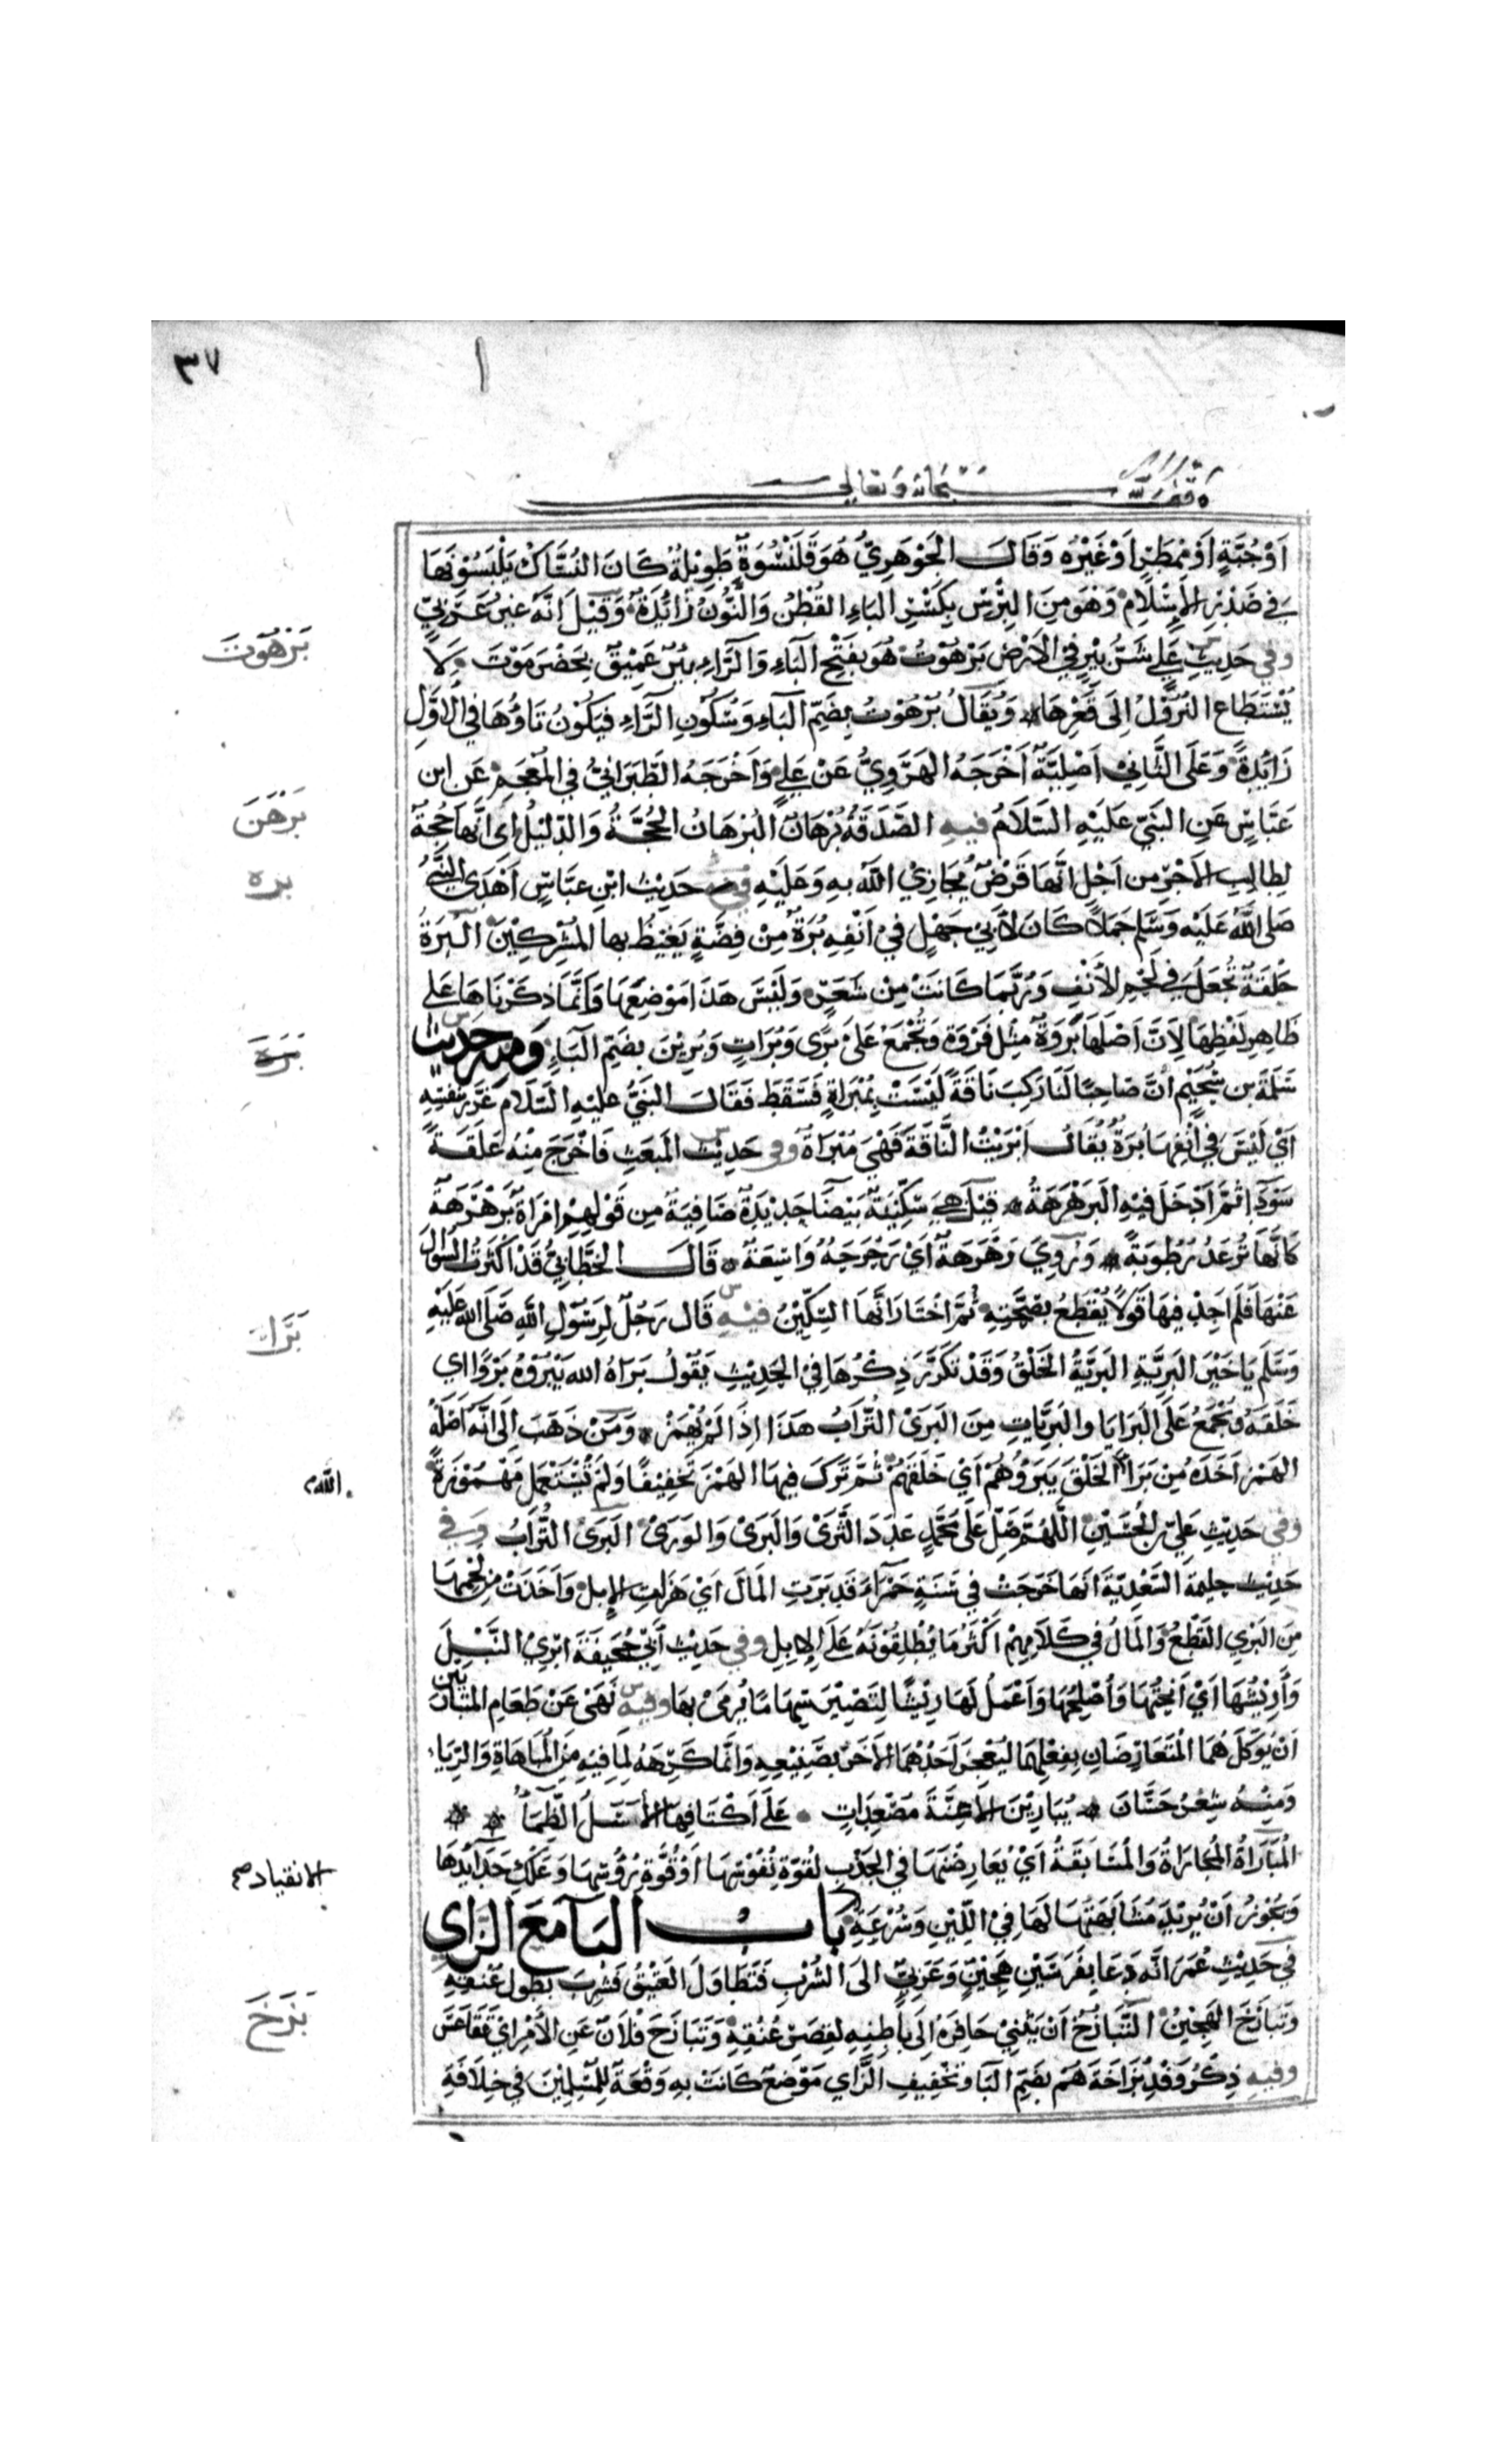 ٣٧
وقف لله سبحانه وتعالى
اَوْجُبَّةٍ اَوْمِمْطَرٍ اَوْغَيْرِهِ وَقَالَ الجَوْهَرِيُّ هُوَقَلَنْسُوَةٌ طَوِيْلَةٌ كَانَ النُسَّاكُ يَلْبَسُوْنَهَا
فِي صَدْرِ الاِسْلَامِ وَهُوَ مِنَ البِرْسِ بِكَسْرِ البَاءِ القُطْنُ وَالنُّونُ زَائِدَةٌ وَقِيْلَ اِنَّهُ غَيْرُ عَرَبِيٍّ
وفي حَدِيْثِ عَلِي شَرُّ بِيْرٍ فِي الاَرْضِ بَرَهُوْتُ هُوَ بِفَتْحِ البَآءِ وَالرَّاءِ بِئْرٌ عَمِيْقٌ بِحَضْرَمَوْتَ لَا
يُسْتَطَاعُ النُزُوْلُ اِلَى قَعْرِهَا وَيُقَالُ بُرْهُوْتُ بِضَمِّ البَآءِ وَسُكُوْنِ الرَّاءِ فَيَكُوْنُ تَاؤُهَا فِي الاَوَّلِ
زَايِدَةً وَعَلَى الثَّانِيْ اَصْلِيَّةً اَخْرَجَهُ الهَرَوِيُّ عَنْ عَلِيٍّ وَاَخْرَجَهُ الطَّبَرَانِيُّ فِي المُعْجَمِ عَنِ ابنِ
عَبَّاسٍ عَنِ النَبِيّ عَلَيْهِ السَّلَامُ فيهِ الصَّدَقَةُ بُرْهَانٌ البُرْهَانُ الحُجَّةُ وَالدَلِيْلُ اي اَنَّهَا حُجَّةٌ
لِطَالِبِ الاَجْرِ مِن اَجْلِ اَنَّهَا فَرْضٌ يُجَازِيْ اللّٰهُ بِهِ وَعَلَيْهِ فِي حَدِيْثِ ابْنِ عَبَّاسٍ اَهْدَى النَّبِيُّ
صَلى اللّٰهُ عَلَيْهِ وَسَلَّم جَمَلًا كَانَ لأَبِيْ جَهْلٍ فِيْ اَنْفِهِ بُرَةٌ مِنْ فِضَّةٍ يَغِيْظُ بها المُشْرِكِيْنَ البُرَةُ
حَلْقَةٌ تُجْعَلُ فِي لَحْمِ الأَنْفِ وَرُبَّمَا كَانَتْ مِنْ شَعَرٍ وَلَيْسَ هَذَا مَوْضِعَهَا وَاِنَّمَا ذَكَرْنَاهَا عَلى
ظَاهِرِ لَفْظِهَا لاَنَّ اَصْلَهَا بَرْوَةٌ مِثْل فَرْوَةٍ وَتُجْمَعُ عَلَى بُرًى وَبُرَاتٍ وَبُرِيْنَ بِضَمِّ البَآءِ وَمنه حَدِيْثُ
سَلَمَةَ بنِ سُحَيْمٍ اَنَّ صَاحِبًا لَنَا رَكِبَ نَاقَةً لَيْسَتْ بِمُبْرَاةٍ فَسَقَطَ فَقَالَ النَبِيُّ عليهِ السَّلَام غَرَّرَ بِنَفْسِهِ
اَيْ لَيْسَ فِي اَنْفِهَا بُرَةٌ يُقَالُ اَبْرَيْتُ النَّاقَةَ فَهْيَ مُبْرَاةٌ وفي حَدِيْثِ المَبْعَثِ فَاَخْرَجَ مِنْهُ عَلَقَةً
سَوْدَآءَ ثُمَّ اَدْخَلَ فِيْهِ البَرَهْرَهَةُ قِيْلَ هِيَ سِكِّيْنَةٌ بَيْضَآ جَدِيْدَةٌ صَافِيَةٌ مِن قَوْلِهِمْ امْرَاَةٌ بَرَهْرَهَةٌ
كَاَنَّهَا تُرْعَدُ رُطُوبَةً وَيُرْوِيَ رَهْرَهَةً اَيْ رَحْرَحَةٌ وَاسِعَةٌ قَالَ الخَطَّابِيُّ قَدْ اَكْثَرْتُ السُؤالَ
عَنْهَا فَلَم اَجِدْ فِيهَا قَوْلًا يُقْطَعُ بِصِحَّتِهِ ثُمَّ اخْتَارَ اَنَّهَا السِّكِّيْنُ فِيْهِ قَالَ رَجُلٌ لِرَسُوْلِ اللّٰهِ صَلَّى اللهُ عَلَيْهِ
وَسَلَّمَ يَا خَيْرَ البَرِيَّةِ البَرِيَّةُ الخَلْقُ وَقَدْ تَكَرَّرَ ذِكْرُهَا فِيْ الحَدِيْثِ يَقُوْلُ بَرَاهُ اللهُ يَبْرُوْهُ بَرْوًا اي
خَلَقَهُ وَتُجْمَعُ عَلَى البَرَايَا والبَرِيَّاتِ مِنَ البَرَىْ التُّرَابُ هَذَا اِذَا لَمْ يُهْمَزْ وَمَنْ ذَهَبَ اِلَى اَنَّهُ اَصْلُهُ
الهَمْزَ اَخَذَهُ مِنْ بَرَأَ الخَلْقَ يَبْرَؤُهُمْ اَيْ خَلَقَهُمْ ثُمَّ تَرَكَ فِيهَا الهَمْزَ تَخْفِيْفًا وَلَمْ تُسْتَعْمَل مَهْمُوْزَةً
وَفي حَدِيْثِ عَلِيّ بْنِ الحُسَيْنِ اَللّٰهُمَّ صَلِّ عَلَى مُحَمَّدٍ عَدَدَ الثَّرَىْ وَالبَرَىْ وَالوَرَىْ البَرَى التُّرَابُ وَفِي
حَدِيْثِ حليمةَ السَّعْدِيَّةِ اَنَهَا خَرَجَتْ فِي سَنَةٍ حَمْرَآءَ قَد بَرَتِ المَالَ اَيْ هَزَلَتِ الاِبِلَ وَاَخَذَتْ مِن لَحْمِهَا
مِنَ البَرْيِ القَطْعُ وَالمَالُ فِي كَلَامِهِمْ اَكْثَرُ مَا يُطْلِقُوْنَهُ عَلَى الاِبِلِ وفي حَدِيْثِ اَبِيْ جُحَيْفَةَ اَبْرِيْ النَّبْلَ
وَاَرِيْشُهَا اَيْ اَنْحِتُهَا وَاُصْلِحُهَا وَاَعْمَلُ لَهَا رِيْشًا لِتَصِيْرَ سِهَامًا يُرْمَى بها وفيهِ نَهَى عَنْ طَعَامِ المُتَبَارِيَيْنِ
اَنْ يُوْكَلَ هُمَا المُتَعَارِضَانِ بِفِعْلِهِمَا لِيُعْجِزَ اَحَدُهُمَا الآخَرَ بِصَنِيْعِهِ وَاِنَّمَا كَرِهَهُ لِمَا فِيْهِ مِنَ المُبَاهَاةِ وَالرِّيَاءِ
وَمِنْهُ شِعْرُ حَسَّانَ يُبَارِيْنَ الاَعِنَّةَ مُصْعِدَاتٍ عَلَى اَكْتَافِهَا الأَسَلُ الظِّمَآءُ
المُبَارَاةُ المُجَارَاةُ وَالمُسَابَقَةُ اَيْ يُعَارِضُهَا فِي الجَذْبِ لِقُوَّةِ نُفُوْسِهَا اَوْ قُوَّةِ رُؤُسِهَا وَعَلْكِ حَدَايِدِهَا
وَيَجُوْزُ اَنْ يُرِيْدَ مُشَابَهَتَهَا لَهَا فِيْ اللِّيْنِ وَسُرْعَةِ بَابُ البَآ مَعَ الزَّاي
فِي حَدِيْثِ عُمَرَ اَنَّهُ دَعَا بِفَرَسَيْنِ هَجِيْنٍ وَعَرَبِيٍّ الىَ الشُرْبِ فَتَطَاوَلَ العَتِيْقُ فَشَرِبَ بِطُولِ عُنُقِهِ
وَتَبَازَخَ الهَجِيْنُ التَّبَازُخُ اَنْ يَثْنِيْ حَافِرَهُ اِلَى بَاطِنِهِ لِقِصَرِ عُنُقِهِ وَتَبَازَخَ فُلَانٌ عَنِ الأَمْرِ ايْ تَقَاعَسَ
وَفيهِ ذِكْرُ وَفْدِ بُزَاخَةَ هُمْ بِضَمِّ البَا وَتَخْفِيفِ الزَّاي مَوْضِعٌ كَانَتْ بِهِ وَقْعَةٌ لِلْمُسْلِمِيْنَ فِي خِلَافَةِ
بَرَهُوْتَ
بَرْهَنَ
بره
بَرَهَ
بَرَا
الله
الانقياد صح
بَزَخَ